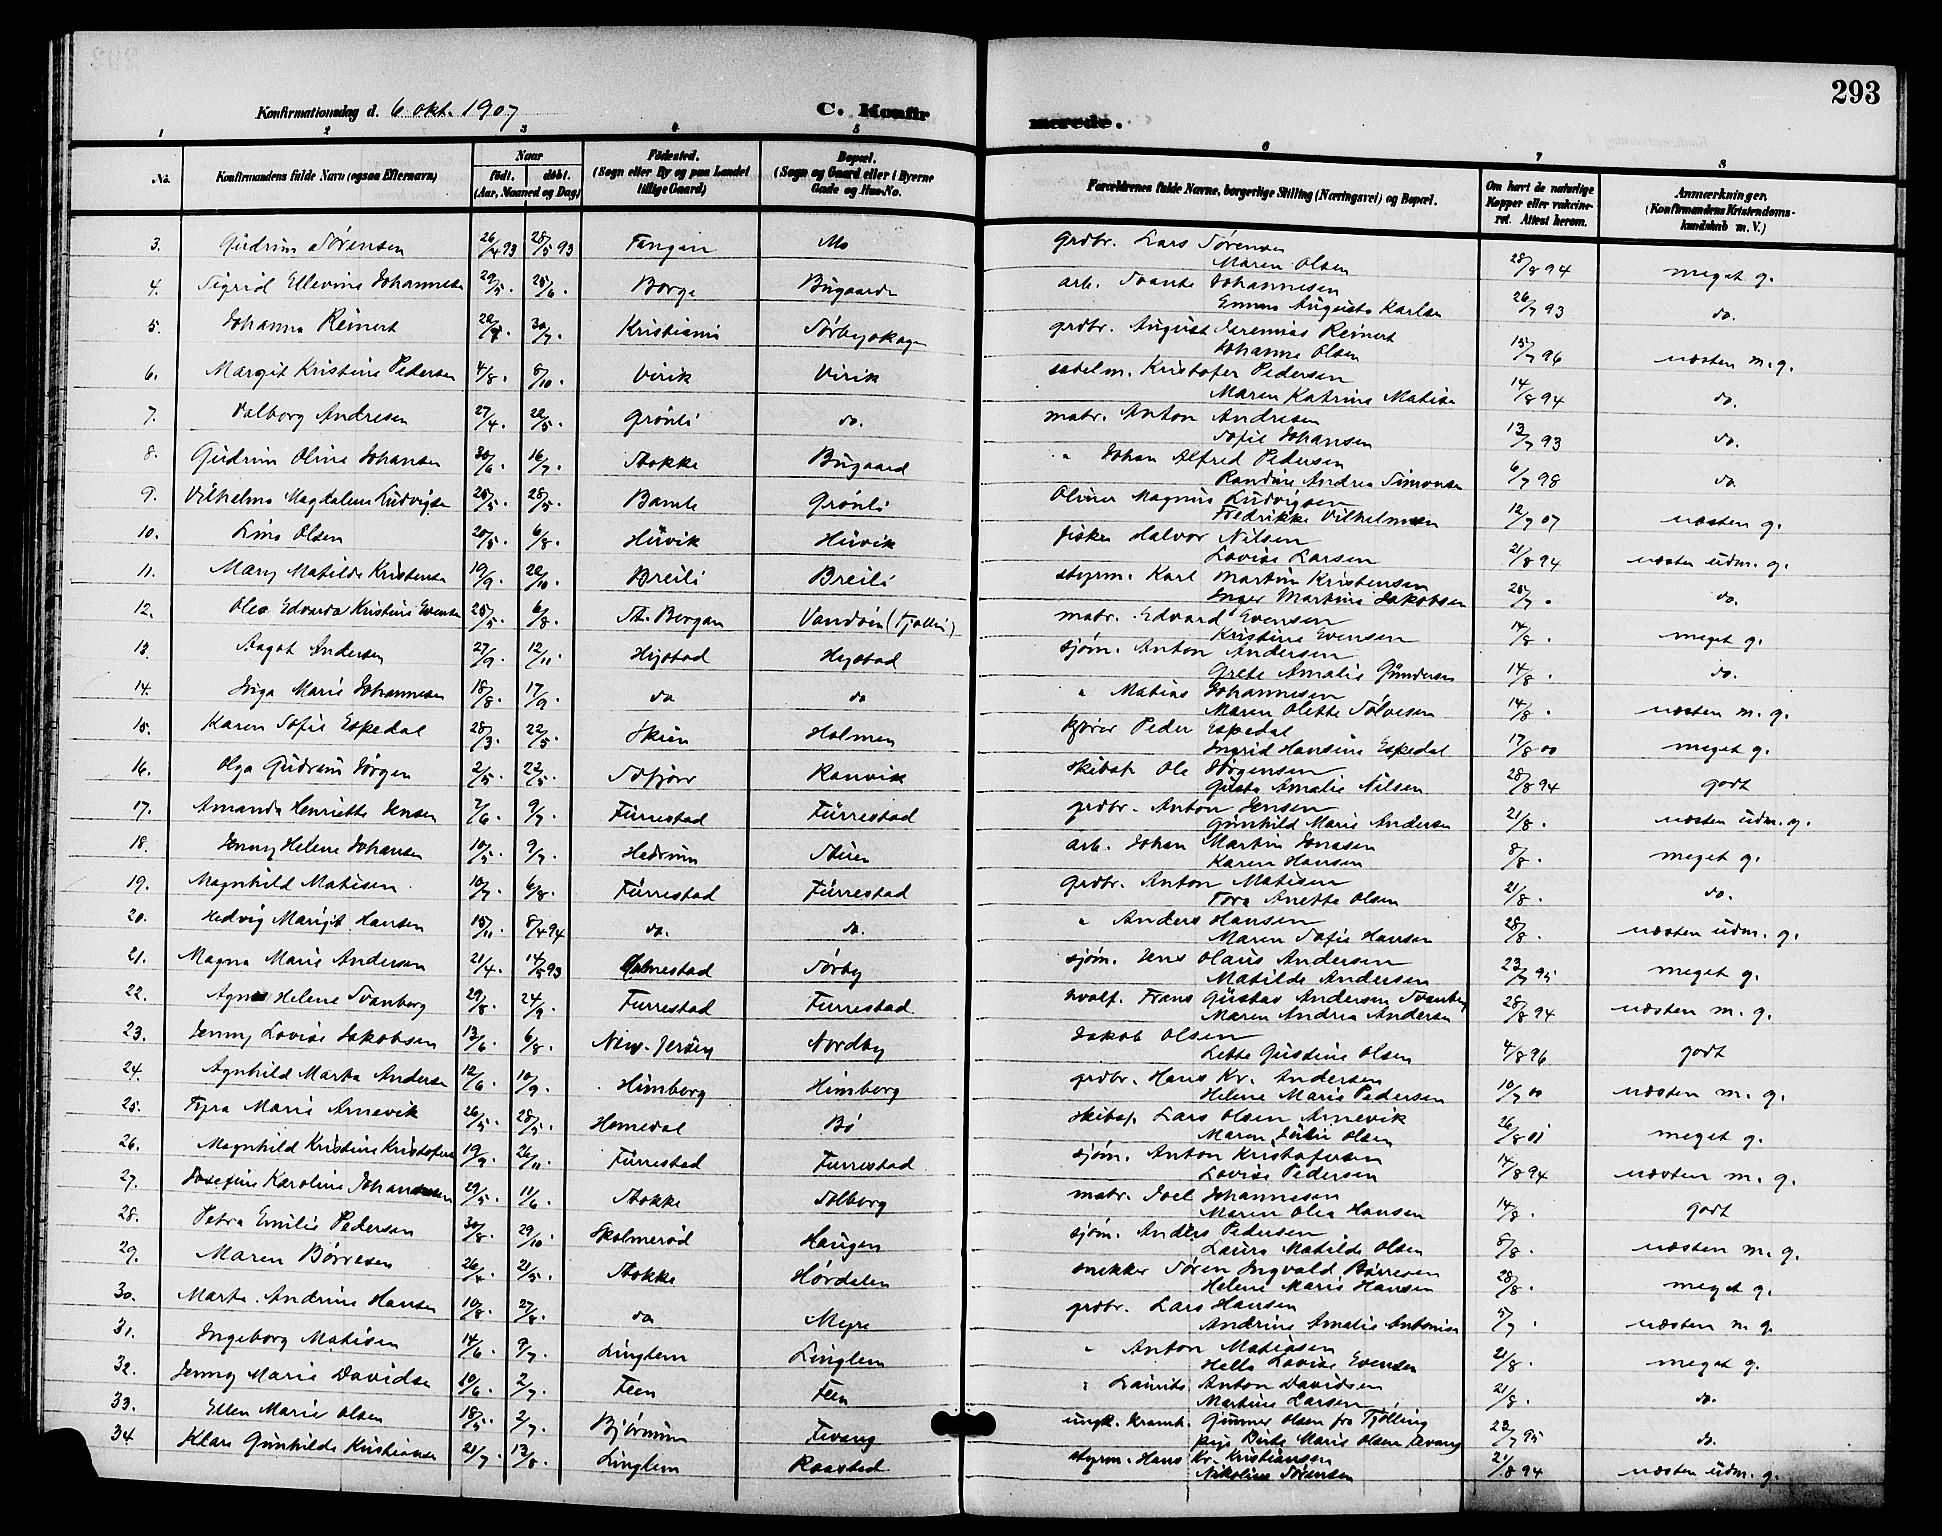 293
Konfirmationsdag d. 6 okt. 1907
C. Konfirmerede.
1 2 3 4 5 6 7 8
No.
Konfirmandens fulde Navn (ogsaa Efternavn)
Naar født. døbt. (Aar, Maaned og Dag)
Fødested. (Sogn eller By og paa Landet tillige Gaard)
Bopæl. (Sogn og Gaard eller i Byerne Gade og Hus-No.
Forældrenes fulde Navne, borgerlige Stilling (Næringsvei) og Bopæl.
Om havt de naturlige Kopper eller vakcineret. Attest herom.
Anmærkninger. (Konfirmandens Kristendomskundskab m. V.)
3. Gudrun Sørensen 26/4 93 28/5 93 Tangen Mo grdbr. Lars Sørensen
Maren Olsen 28/8 94 meget g.
4. Sigrid Ellevine Johannesen 29/5. 25/6. Borge Bugaarde arb. Svante Johannesen
Emma Augusta Karlsen 26/7 93 do.
5. Johanna Reinert 30/7. Kristiania Sørbyskogen grdbr. August Jeremias Reinert
Johanne Olsen 15/7 96 næsten m. g.
6. Margit Kristine Pedersen 4/8. 8/10. Virik Virik sadelm. Kristofer Pedersen
Maren Katrine Matisen 14/8 94 do.
7. Valborg Andresen 27/4. 22/5. Grønli do. matr. Anton Andresen
Sofie Johansen 13/7 93 do.
8. Gudrun Oline Johansen 30/6. 16/7. Stokke Bugaard " Johan Alfred Pedersen
Randine Andrea Simonsen 6/7 98 do.
9. Vilhelma Magdalene Ludvigsen 28/5. Bamle Grønli Oliver Magnus Ludvigsen
Fredrikke Vilhelmsen 12/7 07 næsten g.
10. Lina Olsen 20/5. 6/8. Huvik Huvik fisker Halvor Nilsen
Lovise Larsen 21/8 94 næsten udm. g.
11. Mary Matilde Kristensen 19/9. 22/10. Breili Breili styrm. Karl Martin Kristensen
Inger Martine Jakobsen 25/7. do.
12. Olea Edvarda Kristine Evensen 25/5. 6/8. St. Bergan Vandvin (Tjølling) matr. Edvard Evensen
Kristine Evensen 14/8. meget g.
13. Aagot Andersen 27/9. 12/11. Hystad Hystad sjøm. Anton Andersen
Grete Amalie Gundersen 14/8. do.
14. Inga Marie Johannesen 18/8. 17/9. do do " Matias Johannesen
Maren Olette Sølvesen 14/8. næsten m. g.
15. Karen Sofie Espedal 28/3. 22/5. Skien Holmen kjører Peder Espedal
Ingrid Hansine Espedal 17/8 00 meget g.
16. Olga Gudrun Jørgen 2/5. 22/5. Sdfjor Ranvik skibsf. Ole Jørgensen
Gusta Amalie Nilsen 28/8 94 godt
17. Amanda Henriette Jensen 7/6. 9/7. Furrestad Furrestad grdbr. Anton Jensen
Gunhild Marie Andersen 21/8. næsten udm. g.
18. Jenny Helene Johansen 10/5. 9/7. Hedrum Stuen arb. Johan Martin Jonasen
Karen Hansen 8/8. meget g.
19. Magnhild Matisen 10/7. 6/8. Furrestad Furrestad grdbr. Anton Matisen
Tora Anette Olsen 21/8. do.
20. Hedvig Marigit Hansen 15/11. 8/4 94 do. do. " Anders Hansen
Maren Sofie Hansen 28/8. næsten udm. g.
21. Magna Marie Andersen 21/4. 14/5 93 Holmestad Sørby sjøm. Jens Olaus Andersen
Matilde Andersen 23/7 95 meget g.
22. Agnes Helene Svanberg 29/8. 24/9. Furrestad Furrestad hvalf. Frans Gustav Andersen Svanberg
Maren Andrea Andersen 28/8 94 næsten m. g.
23. Jenny Lovise Jakobsen 13/6. 6/8. New-Jersey Nordby Jakob Olsen
Lette Gustine Olsen 4/8 96 godt
24. Agnhild Marta Andersen 12/6. 10/9. Himberg Himberg grdbr. Hans Kr. Andersen
Helene Marie Pedersen 10/7 00 næsten m. g.
25. Fyra Marie Arnevik 26/5. 28/5. Homedal Bø skibsf. Lars Olsen Arnevik
Maren Julie Olsen 26/8 01 meget g.
26. Magnhild Kristine Kristofersen 19/9. 26/11. Furrestad Furrestad sjøm. Anton Kristofersen
Lovise Pedersen 14/8 94 næsten m. g.
27. Josefine Karoline Johannesen 29/5. 11/6. Stokke Solberg matr. Joel Johannesen
Maren Olea Hansen 14/8. godt
28. Petra Emilie Pedersen 30/8. 29/10. Skolmerød Haugen sjøm. Anders Pedersen
Laura Matilde Olsen 8/8. næsten m. g.
29. Maren Børresen 26/4. 21/5. Stokke Hørdalen snekker Søren Ingvald Børresen
Helene Marie Hansen 28/8. meget g.
30. Marta Andrine Hansen 10/8. 27/8. do Myre grdbr. Lars Hansen
Andrine Amalie Antonisen 5/7. næsten m. g.
31. Ingeborg Matisen 14/6. 9/7. Linglem Linglem " Anton Matiasen
Hella Lovise Evensen 21/8. meget g.
32. Jenny Marie Davidsen 10/6. 2/7. Feen Feen " Lauritz Anton Davidsen
Martine Larsen 21/8. do.
33. Ellen Marie Olsen 18/5. 2/7. Bjørnum Fevang ungk. Kramb. Gunner Olsen fra Tjølling
pige Birte Marie Olsen Fevang 23/7 95 do.
34 Klara Gunhilda Kristiansen 21/7. 13/8. Linglem Raastad styrm. Hans Kr. Kristiansen
Nikoline Sørensen 21/8 94 næsten udm. g.